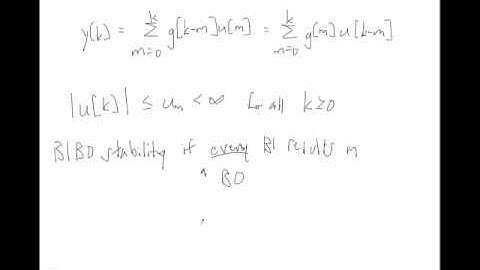 y[k] = ∑_{m=0}^{k} g[k-m]u[m] = ∑_{m=0}^{k} g[m] u[k-m]
|u[k]| ≤ u_m < ∞ for all k≥0
BIBO stability if every BI results in
a BO